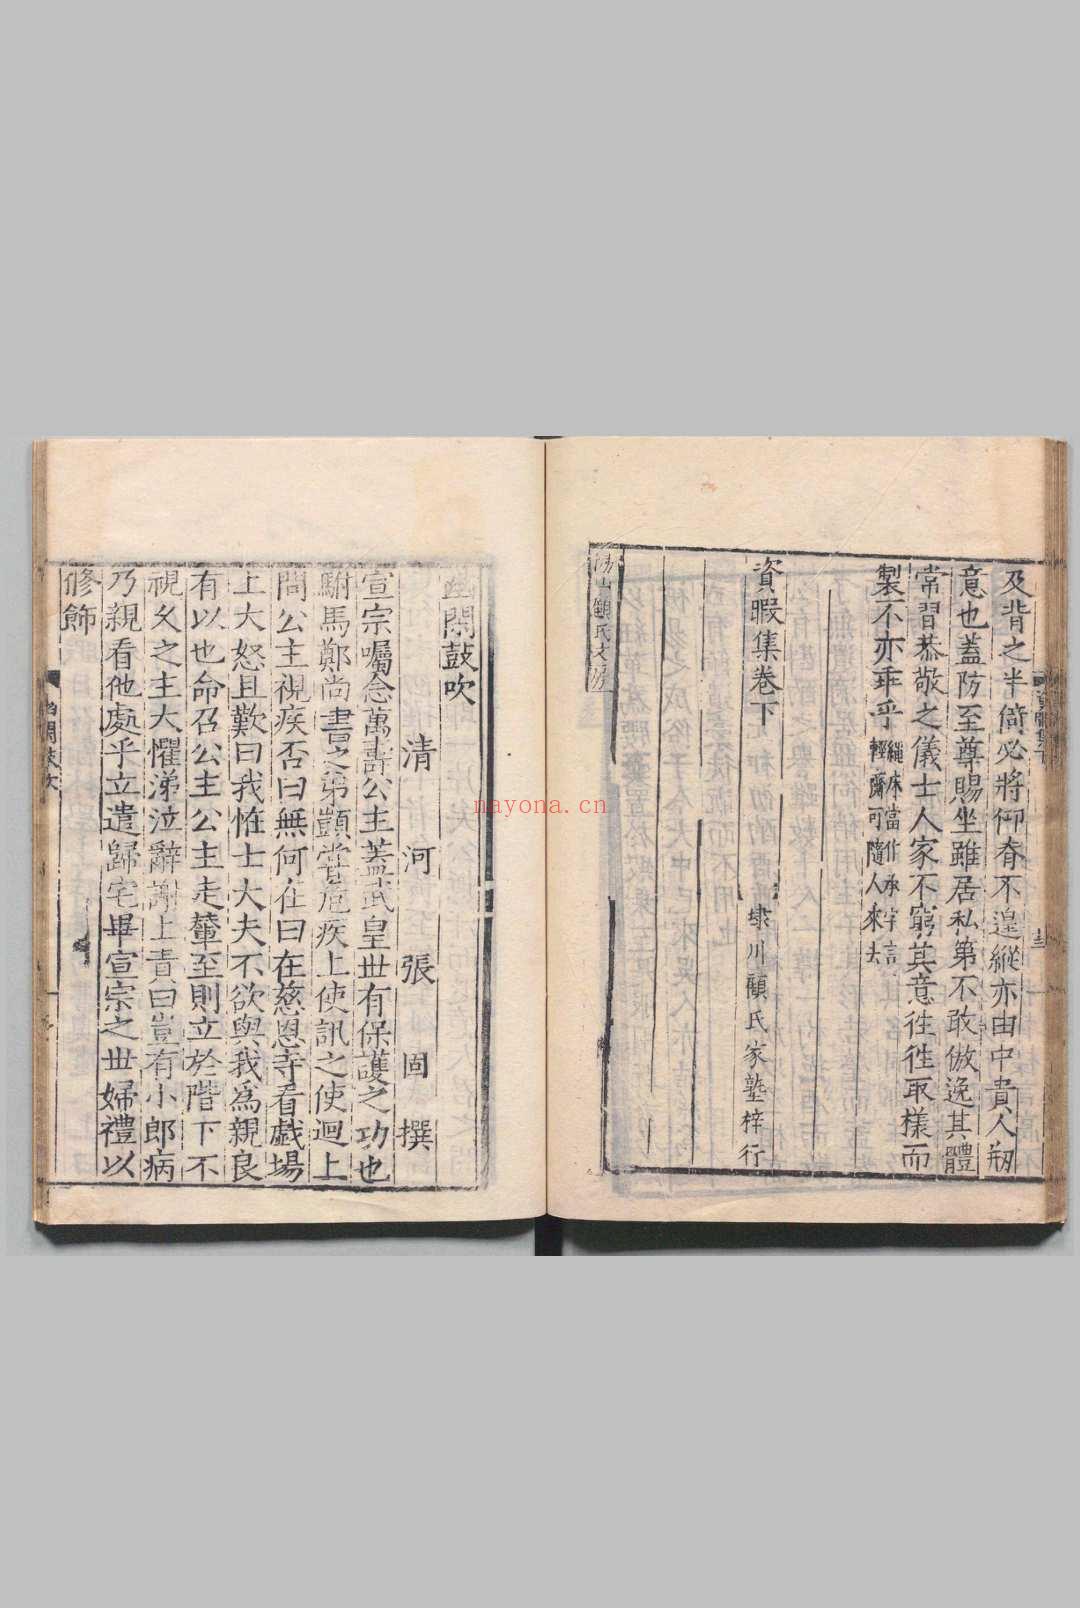 及背之半倚必將仰脊不遑縱亦由中貴人剏
意也蓋防至尊賜坐雖居私第不敢倣逸其體
常習恭敬之儀士人家不窮其意徃徃取樣而
製不亦乖乎
繩床當作承字言
輕齎可隨人來去
資暇集卷下
埭川顧氏家塾梓行
陽山顧氏文房
幽閑鼓吹
清河張固撰
宣宗囑念萬壽公主蓋武皇世有保護之功也
駙馬鄭尚書之弟顗嘗危疾上使訊之使迴上
問公主視疾否曰無何在曰在慈恩寺看戲場
上大怒且歎曰我怪士大夫不欲與我為親良
有以也命召公主公主走輦至則立於階下不
視久之主大懼涕泣辭謝上責曰豈有小郎病
乃親看他處乎立遣歸宅畢宣宗之世婦禮以
修飾
nayona.cn